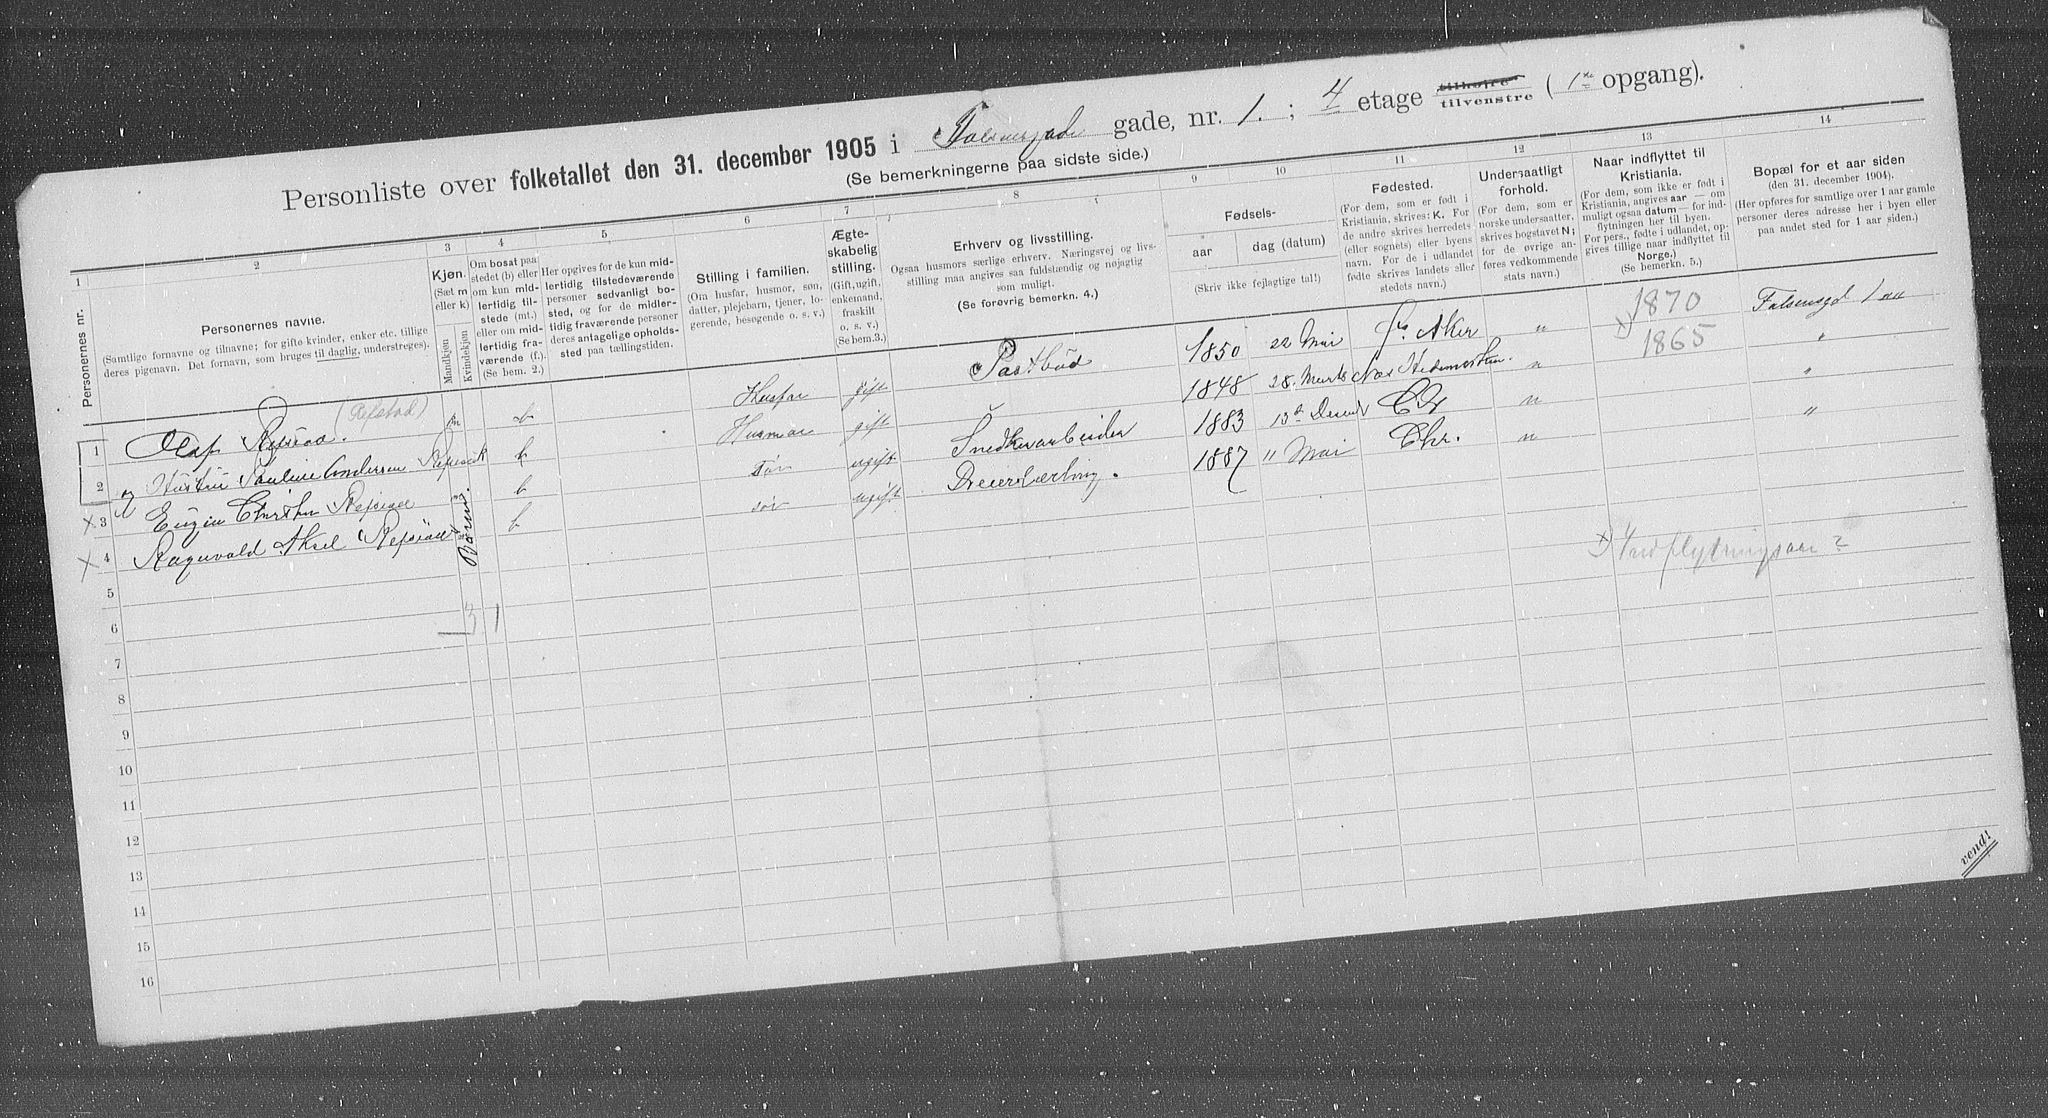 Personliste over folketallet den 31. december 1905 i Falsensgade gade, nr. 1. ; 4 etage tilhøire tilvenstre ( 1ste opgang).
(Se bemerkningerne paa sidste side.)
1 2 3 4 5 6 7 8 9 10 11 12 13 14
Personernes nr.
Personernes navne.
(Samtlige fornavne og tilnavne; for gifte kvinder, enker etc. tillige deres pigenavn. Det fornavn, som bruges til daglig, understreges).
Kjøn.
(Sæt m eller k)
Mandkjøn Kvindekjøn
Om bosat paa stedet (b) eller om kun midlertidig tilstede (mt.) eller om midlertidig fraværende (f.). (Se bem. 2.)
Her opgives for de kun midlertidig tilstedeværende personer sedvanligt bosted, og for de midlertidig fraværende personer deres antagelige opholdssted paa tællingstiden.
Stilling i familien.
(Om husfar, husmor, søn, datter, plejebarn, tjener, logerende, besøgende o. s. v.)
Ægteskabelig stilling.
(Gift, ugift, enkemand, fraskilt o. s. v.) (Se bem. 3.)
Erhverv og livsstilling.
Ogsaa husmors særlige erhverv. Næringsvej og livsstilling maa angives saa fuldstændig og nøjagtig som muligt.
(Se forøvrig bemerkn. 4.)
Fødsels-
aar dag (datum)
(Skriv ikke fejlagtige tal!)
Fødested.
(For dem, som er født i Kristiania, skrives: K. For de andre skrives herredets (eller sognets) eller byens navn. For de i udlandet fødte skrives landets eller stedets navn.)
Undersaatligt forhold.
(For dem, som er norske undersaatter, skrives bogstavet N; for de øvrige anføres vedkommende stats navn.)
Naar indflyttet til Kristiania.
(For dem, som ikke er født i Kristiania, angives aar — om muligt ogsaa datum — for indflytningen her til byen. For pers., født i udlandet, opgives tillige naar indflyttet til Norge.)
(Se bemerkn. 5.)
Bopæl for et aar siden
(den 31. december 1904).
(Her opføres for samtlige over 1 aar gamle personer deres adresse her i byen eller paa andet sted for 1 aar siden.)
1 Olaf Refstad. (Refstad) m b Husfar gift Postbud 1850 22 Mai Aker n 1870 Falsensgd 1
2 Pauline Andersen b Husmor gift 1848 28. Marts Hedemarken. n 1865 "
3 Eugen b søn ugift Snedkerarbeider 1883 13de Decembr Chr n "
4 Ragnvald Aksel b søn ugift Dreierlærling. 1887 11 Mai Chr. n "
5
Indflytningsaar ?
6 3 1
7
8
9
10
11
12
13
14
15
16
vend!